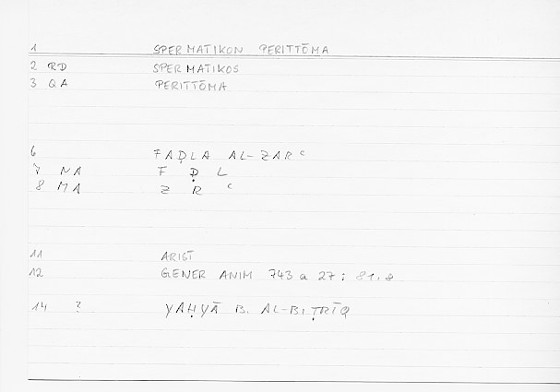 1 SPERMATIKON PERITTŌMA
2 RD SPERMATIKOS
3 QA PERITTŌMA
6 FAḌLA AL-ZARʿ
7 NA F Ḍ L
8 MA Z R ʿ
11 ARIST
12 GENER ANIM 743 a 27 ; 81.8
14 ? YAḤYĀ B. AL-BIṬRĪQ